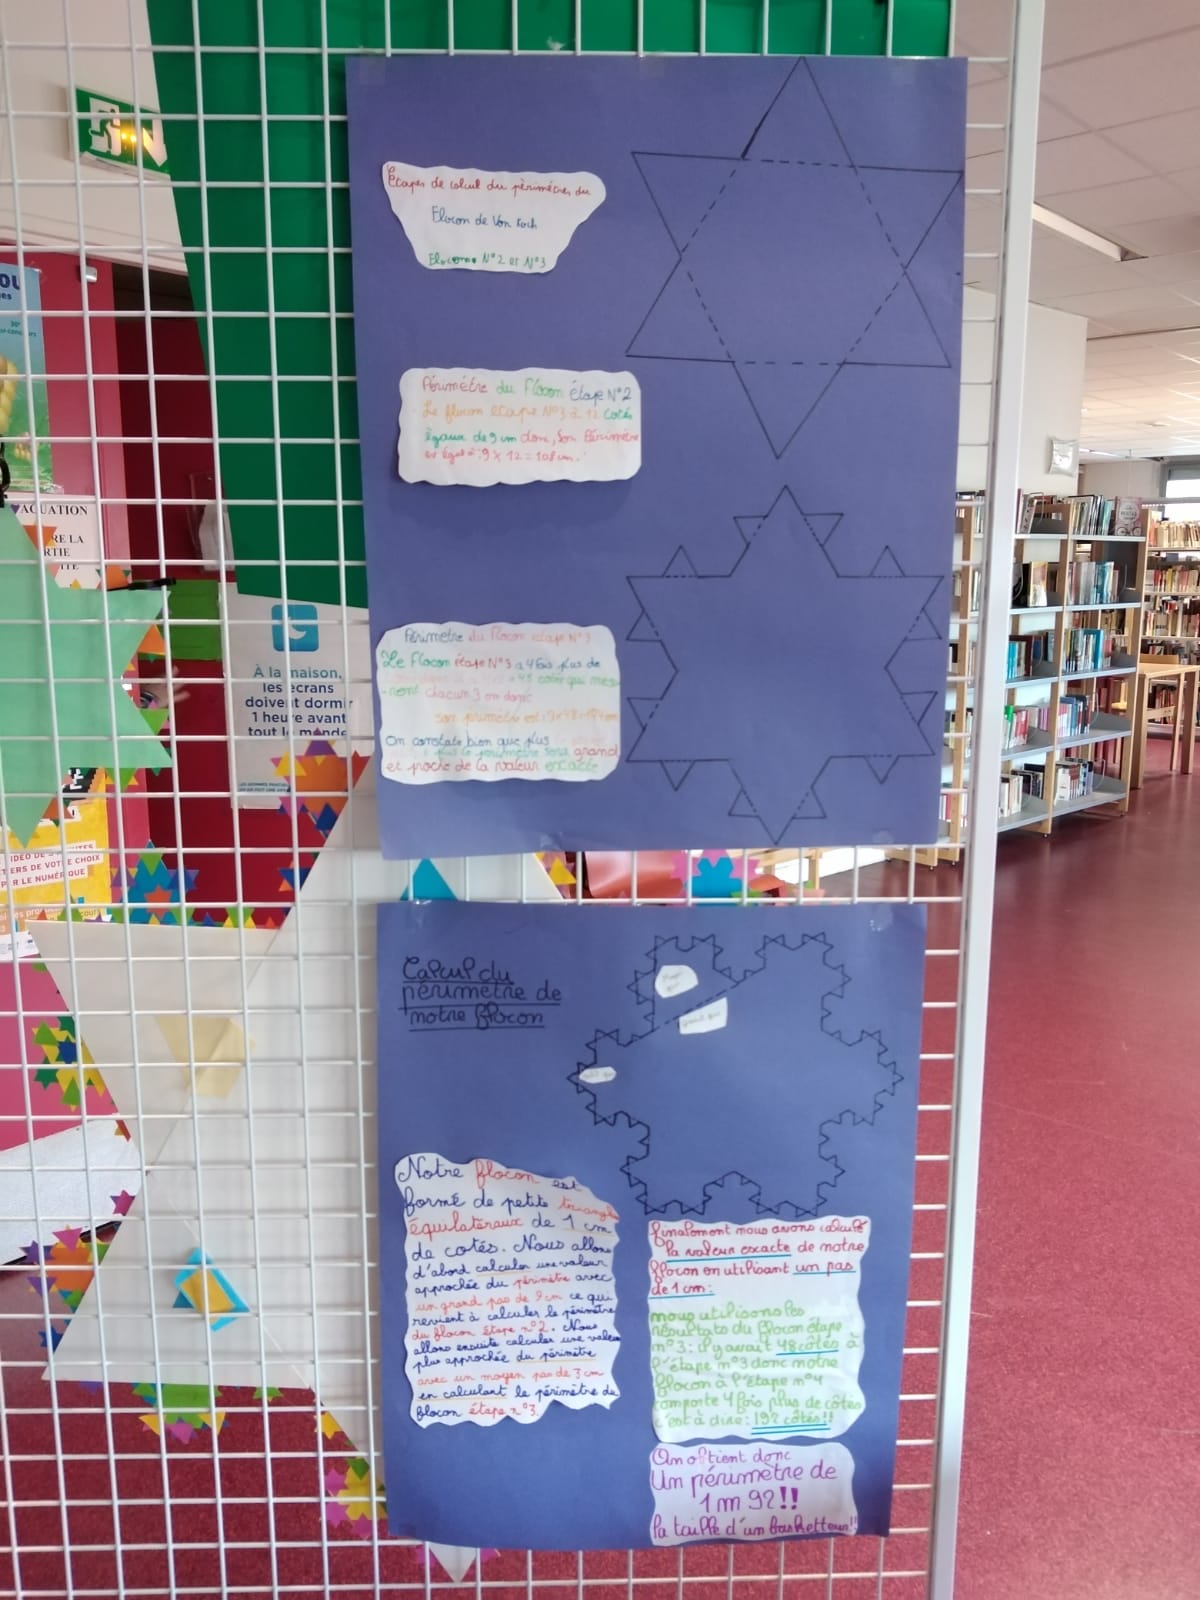 Etapes de calcul du périmètres du
Flocon de Von Koch
Flocons N°2 et N°3
Périmètre du Flocon étape N°2
Le flocon etape N°3 à 12 cotés
égaux de 9 cm donc, son Périmètre
est égal à : 9 x 12 = 108 cm.
Périmetre du Flocon etape N°3
Le Flocon étape N°3 a 4 fois plus de
48 côtés qui mesu
-rent chacun 3 cm donc
son périmètre est :
On constate bien que plus
plus le périmètre sera grand
et proche de la valeur exacte
Calcul du
périmètre de
notre flocon
Notre flocon est
formé de petits triangles
équilatéraux de 1 cm
de cotés. Nous allons
d'abord calculer une valeur
approchée du périmètre avec
un grand pas de 9 cm ce qui
revient à calculer le périmètre
du flocon étape n°2. Nous
allons ensuite calculer une valeur
plus approchée du périmètre
avec un moyen pas de 3 cm
en calculant le périmètre du
flocon étape n°3.
finalement nous avons calculé
la valeur exacte de notre
flocon en utilisant un pas
de 1 cm :
nous utilisons les
résultats du flocon étape
n°3 : il y avait 48 côtés à
l'étape n°3 donc notre
flocon à l'étape n°4
comporte 4 fois plus de côtés
c'est à dire : 192 côtés !!
On obtient donc
Un périmètre de
1 m 92 !!
la taille d'un basketteur !!
À la maison,
les écrans
doivent dormir
1 heure avant
tout le monde
ACUATION
RE LA
RTIE
IDEO DE
TIERS DE VOTRE CHOIX
PAR LE NUMÉRIQUE